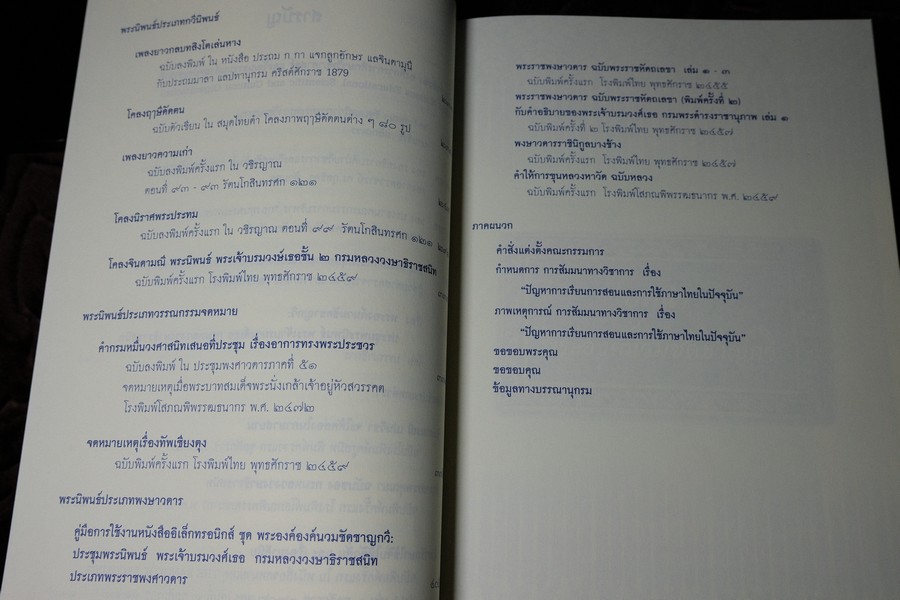 พระนิพนธ์ประเภทกวีนิพนธ์
เพลงยาวกลบทสิงโตเล่นหาง
ฉบับลงพิมพ์ ใน หนังสือ ประถม ก กา แจกลูกอักษร แลจินดามุนี
กับประถมมาลา แลปทานุกรม คริสต์ศักราช 1879
โคลงฤๅษีดัดตน
ฉบับตัวเขียน ใน สมุดไทยดำ โคลงภาพฤๅษีดัดตนต่าง ๆ ๘๐ รูป
เพลงยาวความเก่า
ฉบับลงพิมพ์ครั้งแรก ใน วชิรญาณ
ตอนที่ ๙๓ - ๙๓ รัตนโกสินทรศก ๑๒๑
โคลงนิราศพระประทม
ฉบับลงพิมพ์ครั้งแรก ใน วชิรญาณ ตอนที่ ๙๙ รัตนโกสินทรศก ๑๒๑
โคลงจินดามณี พระนิพนธ์ พระเจ้าบรมวงษ์เธอชั้น ๒ กรมหลวงวงษาธิราชสนิท
ฉบับพิมพ์ครั้งแรก โรงพิมพ์ไทย พุทธศักราช ๒๔๕๙
พระนิพนธ์ประเภทวรรณกรรมจดหมาย
คำกรมหมื่นวงศาสนิทเสนอที่ประชุม เรื่องอาการทรงพระประชวร
ฉบับลงพิมพ์ ใน ประชุมพงศาวดารภาคที่ ๕๑
จดหมายเหตุเมื่อพระบาทสมเด็จพระนั่งเกล้าเจ้าอยู่หัวสวรรคต
โรงพิมพ์โสภณพิพรรฒธนากร พ.ศ. ๒๔๗๒
จดหมายเหตุเรื่องทัพเชียงตุง
ฉบับพิมพ์ครั้งแรก โรงพิมพ์ไทย พุทธศักราช ๒๔๕๙
พระนิพนธ์ประเภทพงษาวดาร
คู่มือการใช้งานหนังสืออิเล็กทรอนิกส์ ชุด พระองค์องค์นวมชัดชาญกวี:
ประชุมพระนิพนธ์ พระเจ้าบรมวงศ์เธอ กรมหลวงวงษาธิราชสนิท
ประเภทพระราชพงศาวดาร
พระราชพงษาวดาร ฉบับพระราชหัตถเลขา เล่ม ๑ - ๓
ฉบับพิมพ์ครั้งแรก โรงพิมพ์ไทย พุทธศักราช ๒๔๕๕
พระราชพงษาวดาร ฉบับพระราชหัตถเลขา (พิมพ์ครั้งที่ ๒)
กับคำอธิบายของพระเจ้าบรมวงศ์เธอ กรมพระดำรงราชานุภาพ เล่ม ๑
ฉบับพิมพ์ครั้งที่ ๒ โรงพิมพ์ไทย พุทธศักราช ๒๔๕๗
พงษาวดารราชินิกูลบางช้าง
ฉบับพิมพ์ครั้งแรก โรงพิมพ์ไทย พุทธศักราช ๒๔๕๗
คำให้การขุนหลวงหาวัด ฉบับหลวง
ฉบับพิมพ์ครั้งแรก โรงพิมพ์โสภณพิพรรฒธนากร พ.ศ. ๒๔๕๙
ภาคผนวก
คำสั่งแต่งตั้งคณะกรรมการ
กำหนดการ การสัมมนาทางวิชาการ เรื่อง
"ปัญหาการเรียนการสอนและการใช้ภาษาไทยในปัจจุบัน"
ภาพเหตุการณ์ การสัมมนาทางวิชาการ เรื่อง
"ปัญหาการเรียนการสอนและการใช้ภาษาไทยในปัจจุบัน"
ขอขอบพระคุณ
ขอขอบคุณ
ข้อมูลทางบรรณานุกรม